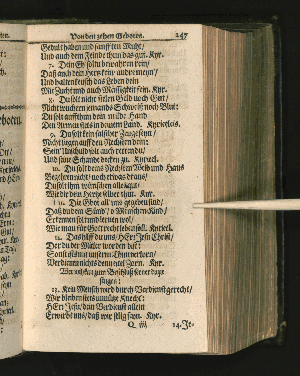 Von den zehen Geboten. 247
Gedult haben und sanfften Muht/
Und auch dem Feinde thun das gut. Kyr.
7. Dein Eh soltu bewahren rein/
Daß auch dein Herz kein andre meyn/
Und halten keusch das Leben dein
Mit Zucht und auch Mässigkeit fein. Kyr.
8. Du solt nicht stelen Geld noch Gut/
Nicht wuchern jemands Schweiß noch Blut:
Du solt auffthun dein milde Hand
Den Armen in deinem Land. Kyrieleis.
9. Du solt kein falscher Zeuge seyn/
Nicht liegen auff den Nechsten dein:
Sein Unschuld solt auch retten du/
Und seine Schande decken zu. Kyrieel.
10. Du solt deins Nechsten Weib und Hauß
Begehren nicht/noch etwas drauß/
Du solt ihm wünschen alles gut/
Wie dir dein Herze selber thut. Kyr.
11. Die Gbot all uns gegeben sind/
Daß du dein Sünd/ o Menschen-Kind/
Erkennen solt und lernen wol/
Wie man für Gott recht leben soll. Kyrieel.
12. Das hilff du uns/ HErr Jesu Christ/
Der du der Mittler worden bist:
Sonst ist mit unserm Thun verlorn/
Verdienen nichts denn eitel Zorn. Kyr.
singet:
13. Kein Mensch wird durch Verdienst gerecht/
Wir bleiben stets unnütze Knecht:
HErr Jesu/ dein Verdienst allein
Erwirbt uns/ daß wir selig seyn. Kyr.
Q iiij 14. Je-